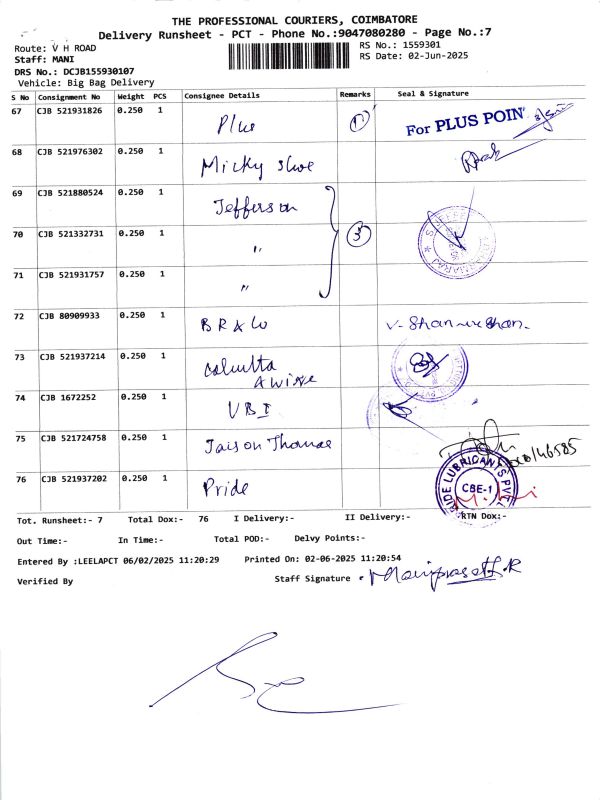 THE PROFESSIONAL COURIERS, COIMBATORE
Delivery Runsheet - PCT - Phone No.:9047080280 - Page No.:7
Route: V H ROAD
RS No.: 1559301
Staff: MANI
RS Date: 02-Jun-2025
DRS No.: DCJB155930107
Vehicle: Big Bag Delivery
S No Consignment No Weight PCS Consignee Details Remarks Seal & Signature
67 CJB 521931826 0.250 1 Plus 1 For PLUS POIN
68 CJB 521976302 0.250 1 Micky shoe
69 CJB 521880524 0.250 1 Jefferson
70 CJB 521332731 0.250 1 " 3
71 CJB 521931757 0.250 1 "
72 CJB 80909933 0.250 1 BRAW
73 CJB 521937214 0.250 1 Calcutta
74 CJB 1672252 0.250 1 UBI
75 CJB 521724758 0.250 1 Jaison Thomas
76 CJB 521937202 0.250 1 Pride RIDE LUBRICANTS PVT CBE-1
Tot. Runsheet:- 7 Total Dox:- 76 I Delivery:- II Delivery:- RTN Dox:-
Out Time:- In Time:- Total POD:- Delvy Points:-
Entered By :LEELAPCT 06/02/2025 11:20:29 Printed On: 02-06-2025 11:20:54
Verified By Staff Signature